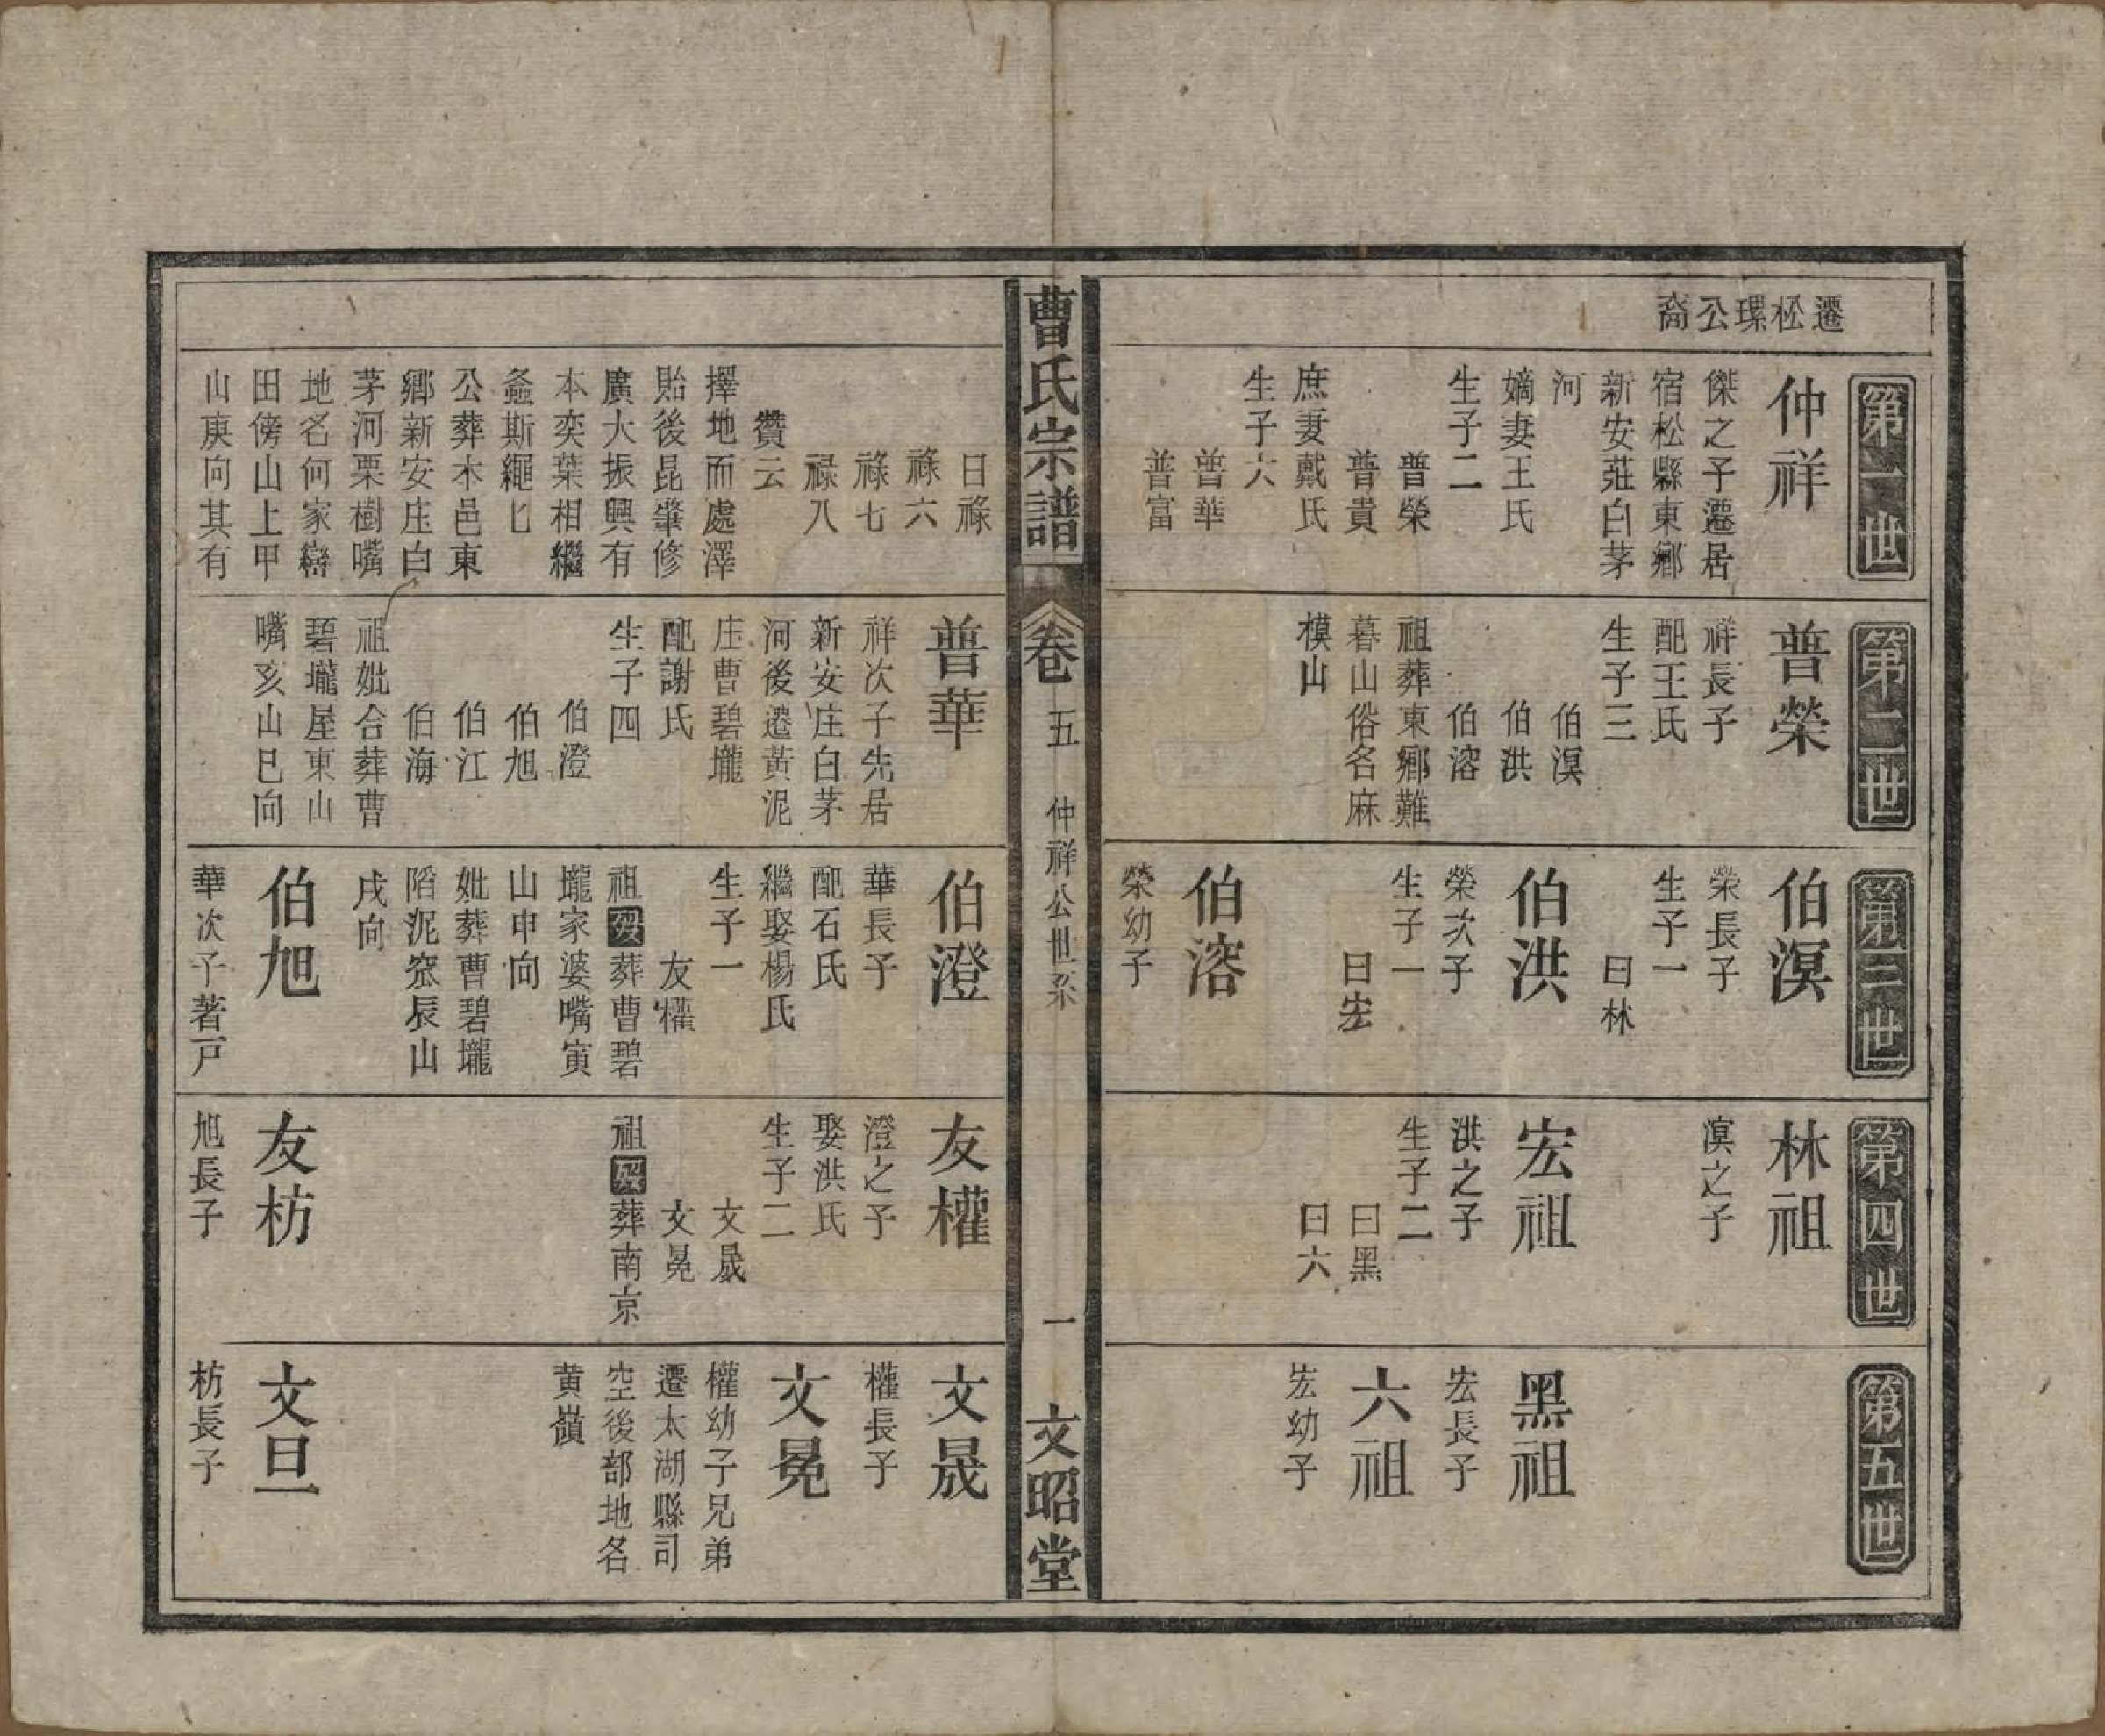 遷松璟公裔
第一世
仲祥
傑之子遷居
宿松縣東鄉
新安莊白茅
河
嫡妻王氏
生子二
普榮
普貴
庶妻戴氏
生子六
普華
普富
第二世
普榮
祥長子
配王氏
生子三
伯溟
伯洪
伯溶
祖葬東鄉難
暮山俗名麻
模山
第三世
伯溟
榮長子
生子一
曰林
伯洪
榮次子
生子一
曰宏
伯溶
榮幼子
第四世
林祖
溟之子
宏祖
洪之子
生子二
曰黑
曰六
第五世
黑祖
宏長子
六祖
宏幼子
曹氏宗譜
卷五
仲祥公世系
一
文昭堂
曰祿
祿六
祿七
禄八
贊云
擇地而處澤
貽後昆肇修
廣大振興有
本奕葉相繼
螽斯繩匕
公葬本邑東
鄉新安庄白
茅河栗樹嘴
地名何家巒
田傍山上甲
山庚向其有
普華
祥次子先居
新安庄白茅
河後遷黃泥
庄曹碧壠
配謝氏
生子四
伯澄
伯旭
伯江
伯海
祖妣合葬曹
碧壠屋東山
嘴亥山巳向
伯澄
華長子
配石氏
繼娶楊氏
生子一
友權
祖歿葬曹碧
壠家婆嘴寅
山申向
妣葬曹碧壠
陷泥窊辰山
戌向
伯旭
華次子著戸
友權
澄之子
娶洪氏
生子二
文晟
文冕
祖歿葬南京
友枋
旭長子
文晟
權長子
文冕
權幼子兄弟
遷太湖縣司
空後部地名
黄嶺
文旦
枋長子